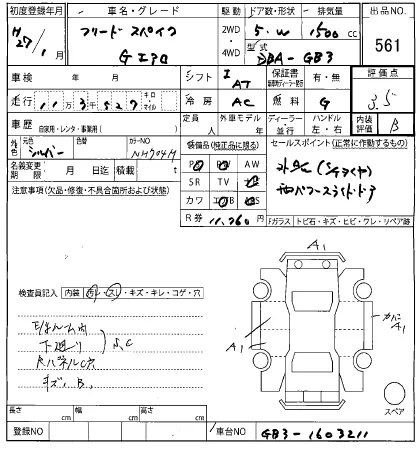 初度登録年月 車名・グレード 駆動 ドア数・形状 排気量 出品NO.
H27/1月 フリード スパイク 2WD・4WD 5.W 1500cc 561
Gエアロ 型式 DBA-GB3
車検 年 月 シフト I AT 保証書 有・無 評価点
走行 11万3527 キロ マイル 冷房 AC 燃料 G 3.5
車歴 自家用・レンタ・事業用( ) 定員 人 外車モデル 年 ディーラー・並行 ハンドル 左・右 内装評価 B
外色 元色 シルバー 色替 カラーNO NH704M 装備品(純正品に限る) セールスポイント(正常に作動するもの)
名義変更期限 月 日迄 積載 t PS PW AW
注意事項(欠品・修復・不具合箇所および状態) SR TV
カワ
R券 11,260円
Fガラス トビ石・キズ・ヒビ・ワレ・リペア跡
検査員記入 内装 汚レ・スレ・キズ・キレ・コゲ・穴
A1
下廻り S,C
A1
A1
キズ、B、
スペア
長さ cm 幅 cm 高さ cm
登録NO 車台NO GB3-1603211